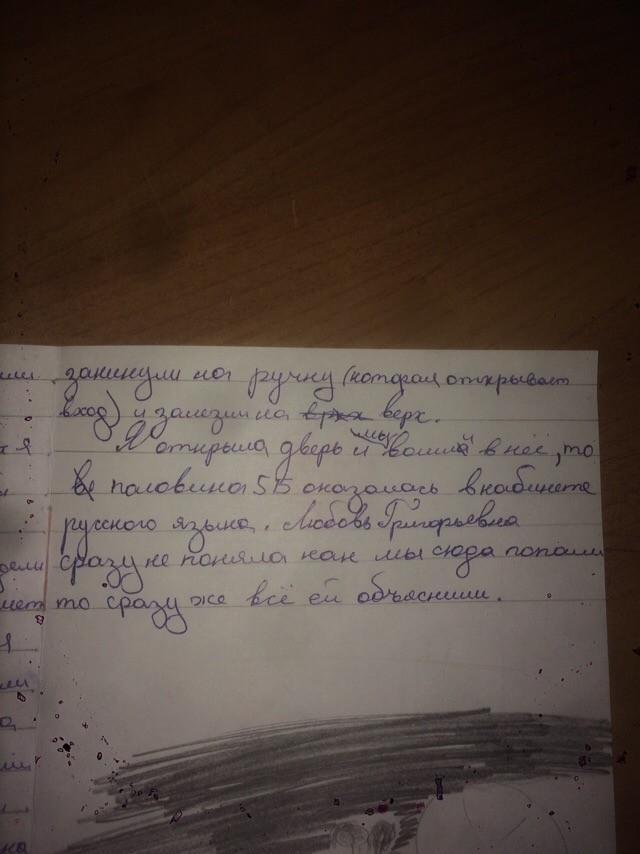 ии закинули на ручку (которая открывает
вход) и залезли на врха верх.
я Я открыла дверь и мы вошли в неё, то
ве половина 5Б оказалась в кабинете
русского языка. Любовь Григорьевна
дели сразу не поняла как мы сюда попали
мет то сразу же всё ей объяснили.
я
ли
на